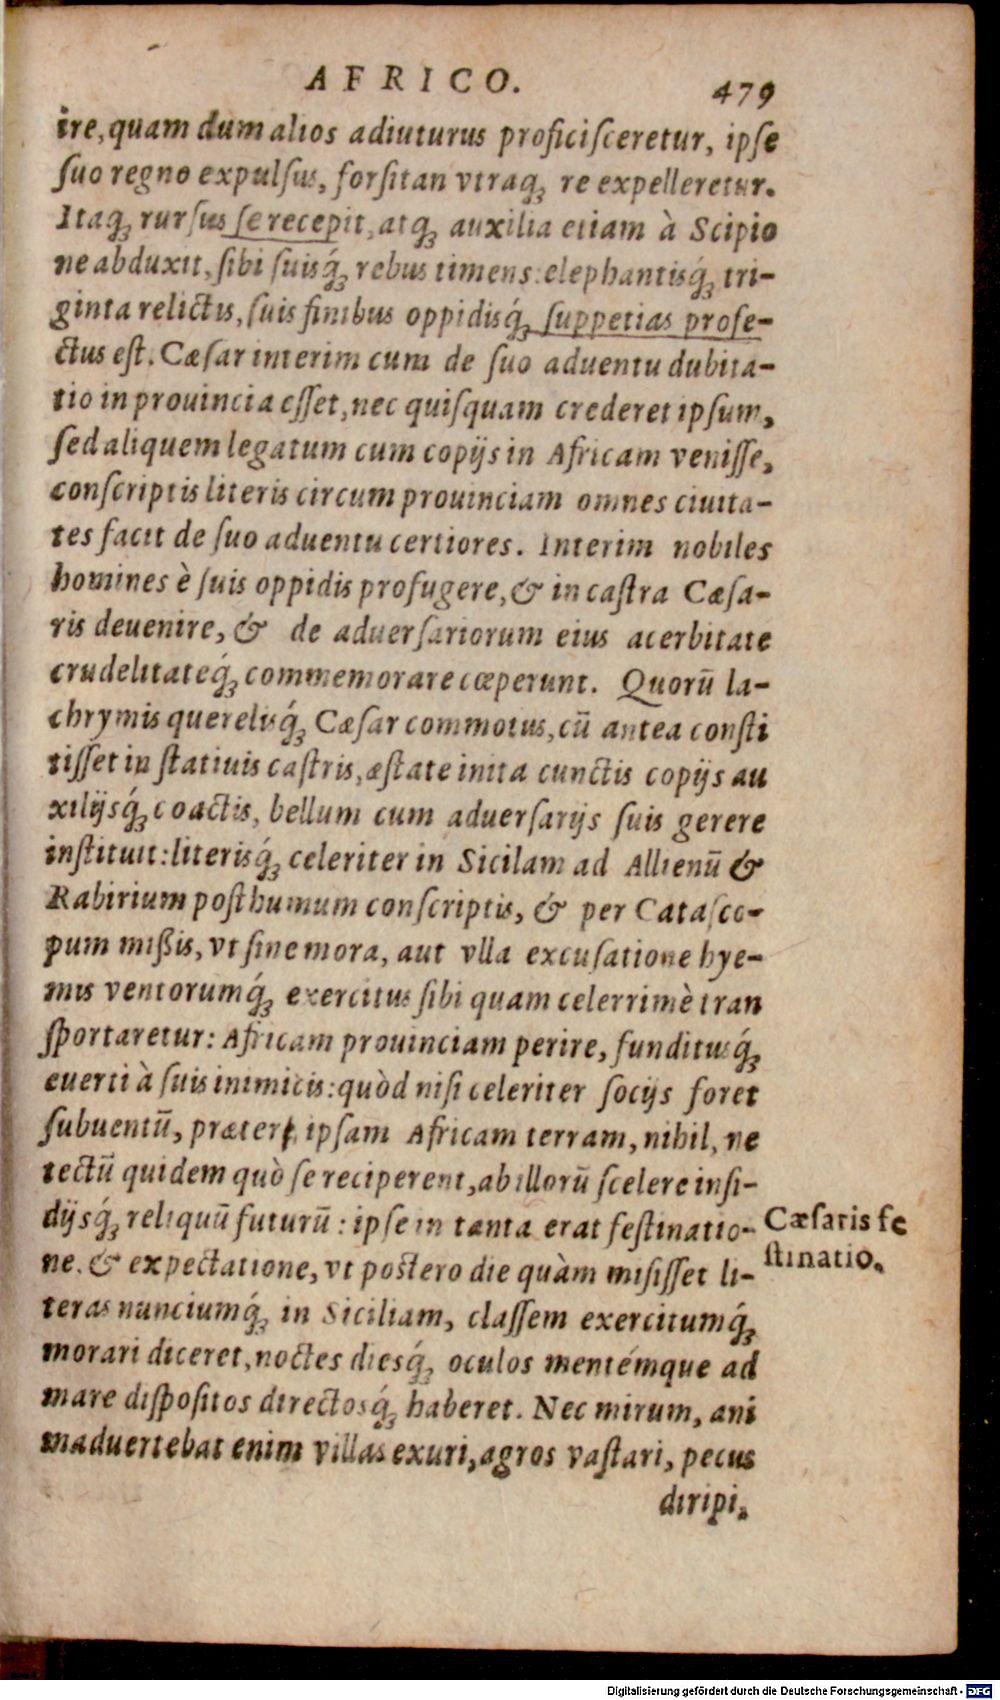 AFRICO. 479
ire, quam dum alios adiuturus proficisceretur, ipse
suo regno expulsus, forsitan vtraq́ꝫ re expelleretur.
Itaqꝫ rursus se recepit, atqꝫ auxilia etiam à Scipio
ne abduxit, sibi suisq́ꝫ rebus timens: elephantisq́ꝫ tri-
ginta relictis, suis finibus oppidisq́ꝫ suppetias profe-
ctus est. Cæsar interim cum de suo aduentu dubita-
tio in prouincia esset, nec quisquam crederet ipsum,
sed aliquem legatum cum copijs in Africam venisse,
conscriptis literis circum prouinciam omnes ciuita-
tes facit de suo aduentu certiores. Interim nobiles
homines è suis oppidis profugere, & in castra Cæsa-
ris deuenire, & de aduersariorum eius acerbitate
crudelitateq́ꝫ commemorare cœperunt. Quorū la-
chrymis querelisq́ꝫ Cæsar commotus, cū antea consti
tisset in statiuis castris, æstate inita cunctis copijs au
xilijsq́ꝫ coactis, bellum cum aduersarijs suis gerere
instituit: literisq́ꝫ celeriter in Sicilam ad Allienū &
Rabirium posthumum conscriptis, & per Catasco-
pum mißis, vt sine mora, aut vlla excusatione hye-
mis ventorumq́ꝫ exercitus sibi quam celerrimè tran
sportaretur: Africam prouinciam perire, funditusq́ꝫ
euerti à suis inimicis: quòd nisi celeriter socijs foret
subuentū, præter ipsam Africam terram, nihil, ne
tectū quidem quò se reciperent, ab illorū scelere insi-
dijsq́ꝫ reliquū futurū: ipse in tanta erat festinatio-
ne. & expectatione, vt postero die quàm misisset li-
teras nunciumq́ꝫ in Siciliam, classem exercitumq́ꝫ
morari diceret, noctes diesq́ꝫ oculos mentémque ad
mare dispositos directosq́ꝫ haberet. Nec mirum, ani
maduertebat enim villas exuri, agros vastari, pecus
diripi,
Cæsaris fe
stinatio.
Digitalisierung gefördert durch die Deutsche Forschungsgemeinschaft - DFG